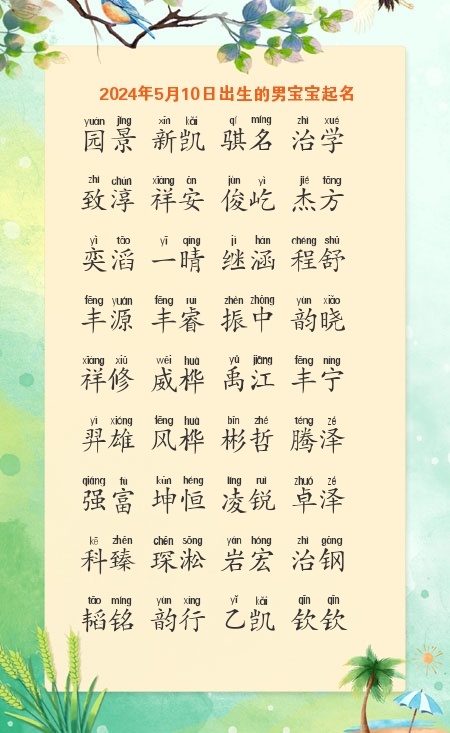 2024年5月10日出生的男宝宝起名
yuán jǐng xīn kǎi qí míng zhì xué
园景 新凯 骐名 治学
zhì chún xiáng ān jùn yì jié fāng
致淳 祥安 俊屹 杰方
yì tāo yī qíng jì hán chéng shū
奕滔 一晴 继涵 程舒
fēng yuán fēng ruì zhèn zhōng yùn xiǎo
丰源 丰睿 振中 韵晓
xiáng xiū wēi huà yǔ jiāng fēng níng
祥修 威桦 禹江 丰宁
yì xióng fēng huà bīn zhé téng zé
羿雄 风桦 彬哲 腾泽
qiáng fù kūn héng líng ruì zhuó zé
强富 坤恒 凌锐 卓泽
kē zhēn chēn sōng yán hóng zhì gāng
科臻 琛淞 岩宏 治钢
tāo míng yùn xíng yǐ kǎi qīn qīn
韬铭 韵行 乙凯 钦钦